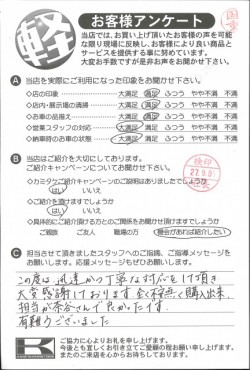 軽
お客様アンケート
当店では、お買い上げ頂いたお客様の声を可能
な限り現場に反映し、お客様により良い商品と
サービスを提供する事に努めています。
大変お手数ですが是非お声をお聞かせ下さい。
A 当店を実際にご利用になった印象をお聞かせ下さい。
◇店の印象 大満足 満足 ふつう やや不満 不満
◇店内・展示場の清掃 大満足 満足 ふつう やや不満 不満
◇お車の品揃え 大満足 満足 ふつう やや不満 不満
◇営業スタッフの対応 大満足 満足 ふつう やや不満 不満
◇納車時のお車の状態 大満足 満足 ふつう やや不満 不満
B 当店はご紹介を大切にしております。
ご紹介キャンペーンについてお聞かせ下さい。
◇カミタケご紹介キャンペーンのご説明はありましたでしょうか
はい いいえ
◇ご紹介を頂けますでしょうか
はい いいえ
◇具体的にご紹介頂ける方とのご関係をお聞かせ頂けますでしょうか
ご親戚 ご友人 職場の方 機会があれば紹介したい
検印
27.9.0
C 担当させて頂きましたスタッフへのご指摘、ご指導メッセージを
お願いします。応援メッセージもぜひお願いします。
この度は、迅速かつ丁寧な対応をして頂き
大変感謝しております。
購入出来、
担当が
さんで良かったです。
有難うございました
K
ご協力に心よりお礼を申し上げます。
今後とも宜しくお引き立てご愛顧の程お願い申し上げます。
またのご来店を心からお待ちしております。